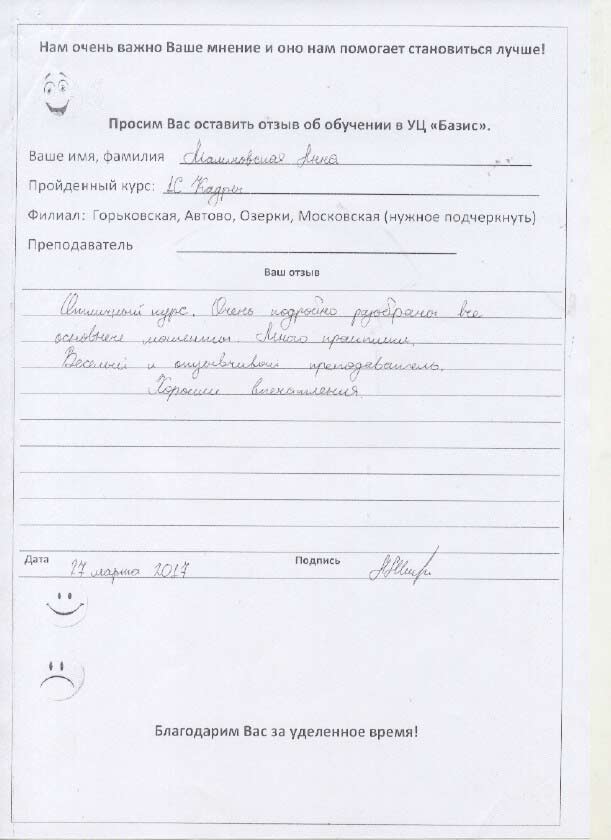 Нам очень важно Ваше мнение и оно нам помогает становиться лучше!
Просим Вас оставить отзыв об обучении в УЦ «Базис».
Ваше имя, фамилия Малиновская Анна
Пройденный курс: 1С Кадры
Филиал: Горьковская, Автово, Озерки, Московская (нужное подчеркнуть)
Преподаватель
Ваш отзыв
Отличный курс. Очень подробно разобраны все
основные моменты. Много практики.
Веселый и отзывчивый преподаватель.
Хорошие впечатления.
Дата 27 марта 2017 Подпись
Благодарим Вас за уделенное время!